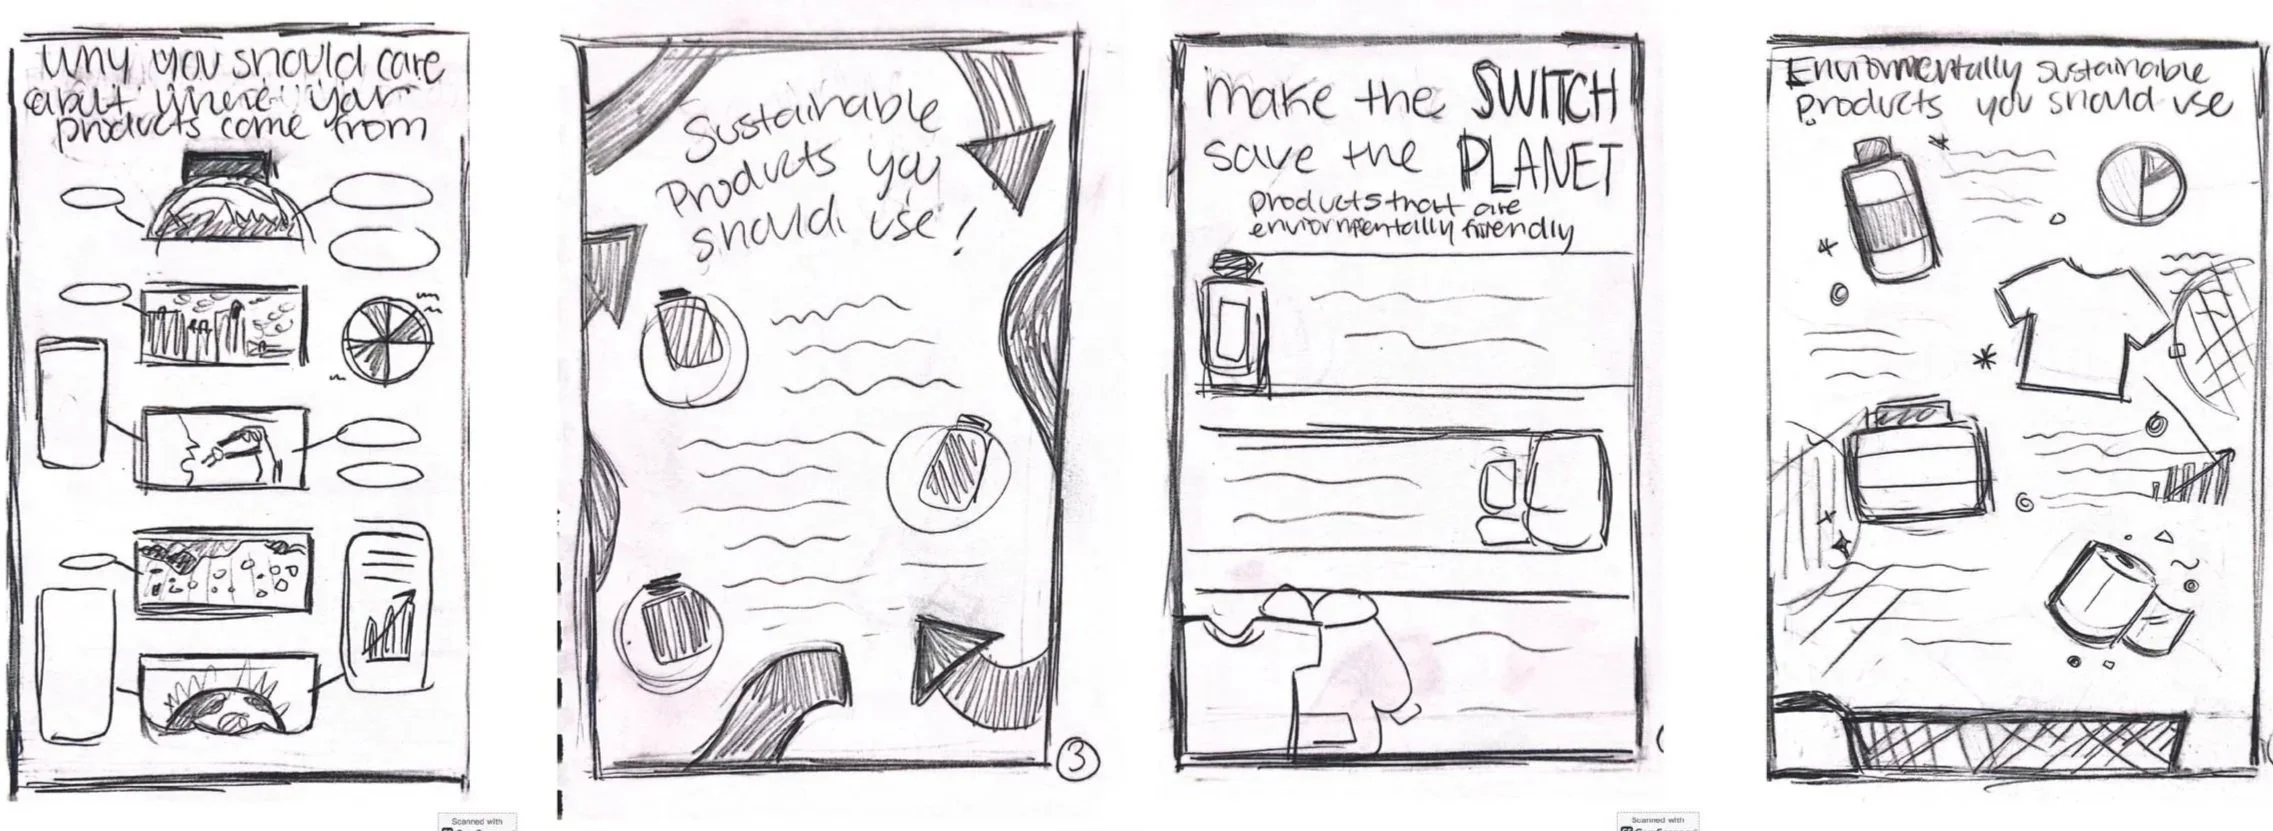 Why you should care
about where your
products come from
Sustainable
Products you
should use!
3
make the SWITCH
save the PLANET
products that are
enviornmentally friendly
Enviornmentally sustainable
products you should use
Scanned with
Scanned with